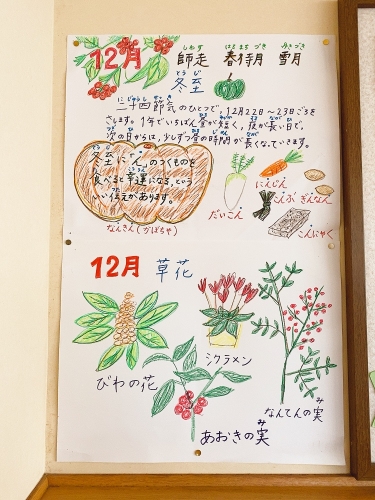 12月 師走 春待月 雪月
しわす はるまちづき ゆきづき
冬至
とうじ
二十四節気のひとつで、12月22日〜23日ごろを
さします。1年でいちばん昼が短く、夜が長い日で、
次の日からは、少しずつ昼の時間が長くなっていきます。
冬至に「ん」のつくものを
食べると幸運になる、という
いい伝えがあります。
なんきん(かぼちゃ)
だいこん
にんじん
こんぶ ぎんなん
こんにゃく
12月 草花
びわの花
シクラメン
あおきの実
なんてんの実